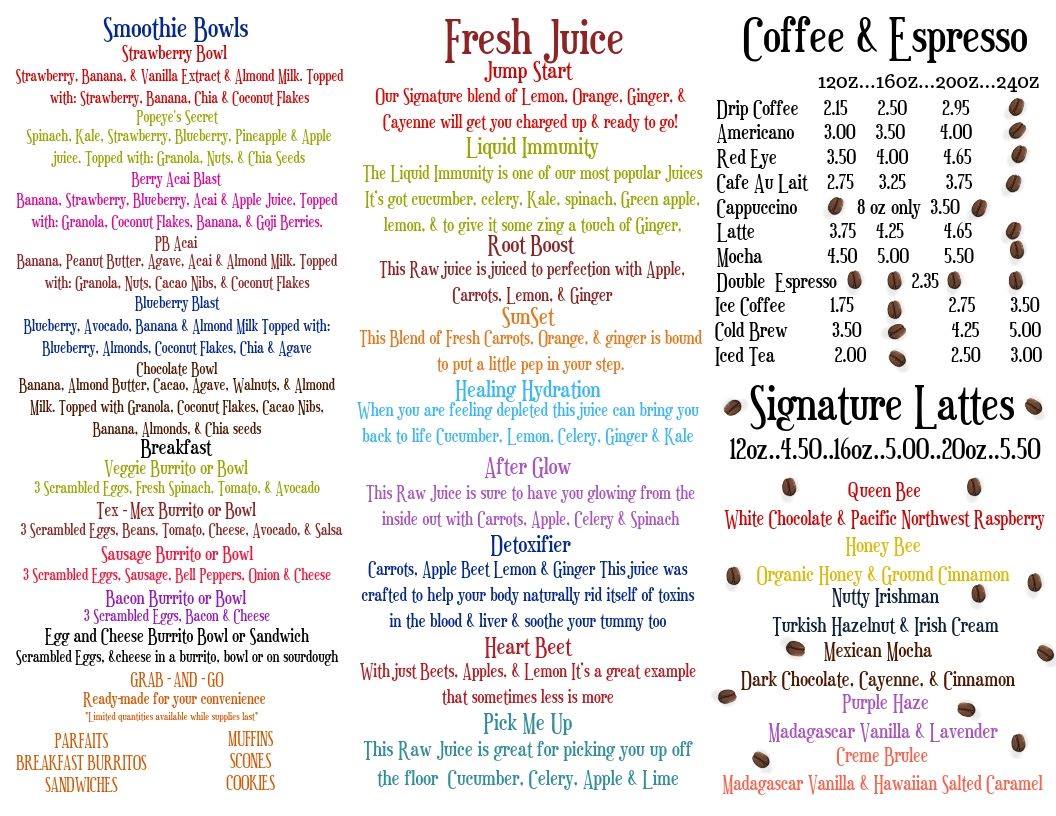 Smoothie Bowls
Strawberry Bowl
Strawberry, Banana, & Vanilla Extract & Almond Milk. Topped
with: Strawberry, Banana, Chia & Coconut Flakes
Popeye's Secret
Spinach, Kale, Strawberry, Blueberry, Pineapple & Apple
juice. Topped with: Granola, Nuts, & Chia Seeds
Berry Acai Blast
Banana, Strawberry, Blueberry, Acai & Apple Juice, Topped
with: Granola, Coconut Flakes, Banana, & Goji Berries.
PB Acai
Banana, Peanut Butter, Agave, Acai & Almond Milk. Topped
with: Granola, Nuts, Cacao Nibs, & Coconut Flakes
Blueberry Blast
Blueberry, Avocado, Banana & Almond Milk Topped with:
Blueberry, Almonds, Coconut Flakes, Chia & Agave
Chocolate Bowl
Banana, Almond Butter, Cacao, Agave, Walnuts, & Almond
Milk. Topped with Granola, Coconut Flakes, Cacao Nibs,
Banana, Almonds, & Chia seeds
Breakfast
Veggie Burrito or Bowl
3 Scrambled Eggs, Fresh Spinach, Tomato, & Avocado
Tex - Mex Burrito or Bowl
3 Scrambled Eggs, Beans, Tomato, Cheese, Avocado, & Salsa
Sausage Burrito or Bowl
3 Scrambled Eggs, Sausage, Bell Peppers, Onion & Cheese
Bacon Burrito or Bowl
3 Scrambled Eggs, Bacon & Cheese
Egg and Cheese Burrito Bowl or Sandwich
Scrambled Eggs, &cheese in a burrito, bowl or on sourdough
GRAB - AND - GO
Ready-made for your convenience
*Limited quantities available while supplies last*
PARFAITS
BREAKFAST BURRITOS
SANDWICHES
MUFFINS
SCONES
COOKIES
Fresh Juice
Jump Start
Our Signature blend of Lemon, Orange, Ginger, &
Cayenne will get you charged up & ready to go!
Liquid Immunity
The Liquid Immunity is one of our most popular Juices
It's got cucumber, celery, Kale, spinach, Green apple,
lemon, & to give it some zing a touch of Ginger,
Root Boost
This Raw juice is juiced to perfection with Apple,
Carrots, Lemon, & Ginger
SunSet
This Blend of Fresh Carrots, Orange, & ginger is bound
to put a little pep in your step.
Healing Hydration
When you are feeling depleted this juice can bring you
back to life Cucumber, Lemon, Celery, Ginger & Kale
After Glow
This Raw Juice is sure to have you glowing from the
inside out with Carrots, Apple, Celery & Spinach
Detoxifier
Carrots, Apple Beet Lemon & Ginger This juice was
crafted to help your body naturally rid itself of toxins
in the blood & liver & soothe your tummy too
Heart Beet
With just Beets, Apples, & Lemon It's a great example
that sometimes less is more
Pick Me Up
This Raw Juice is great for picking you up off
the floor Cucumber, Celery, Apple & Lime
Coffee & Espresso
12oz...16oz...20oz...24oz
Drip Coffee 2.15 2.50 2.95
Americano 3.00 3.50 4.00
Red Eye 3.50 4.00 4.65
Cafe Au Lait 2.75 3.25 3.75
Cappuccino 8 oz only 3.50
Latte 3.75 4.25 4.65
Mocha 4.50 5.00 5.50
Double Espresso 2.35
Ice Coffee 1.75 2.75 3.50
Cold Brew 3.50 4.25 5.00
Iced Tea 2.00 2.50 3.00
Signature Lattes
12oz..4.50..16oz..5.00..20oz..5.50
Queen Bee
White Chocolate & Pacific Northwest Raspberry
Honey Bee
Organic Honey & Ground Cinnamon
Nutty Irishman
Turkish Hazelnut & Irish Cream
Mexican Mocha
Dark Chocolate, Cayenne, & Cinnamon
Purple Haze
Madagascar Vanilla & Lavender
Creme Brulee
Madagascar Vanilla & Hawaiian Salted Caramel